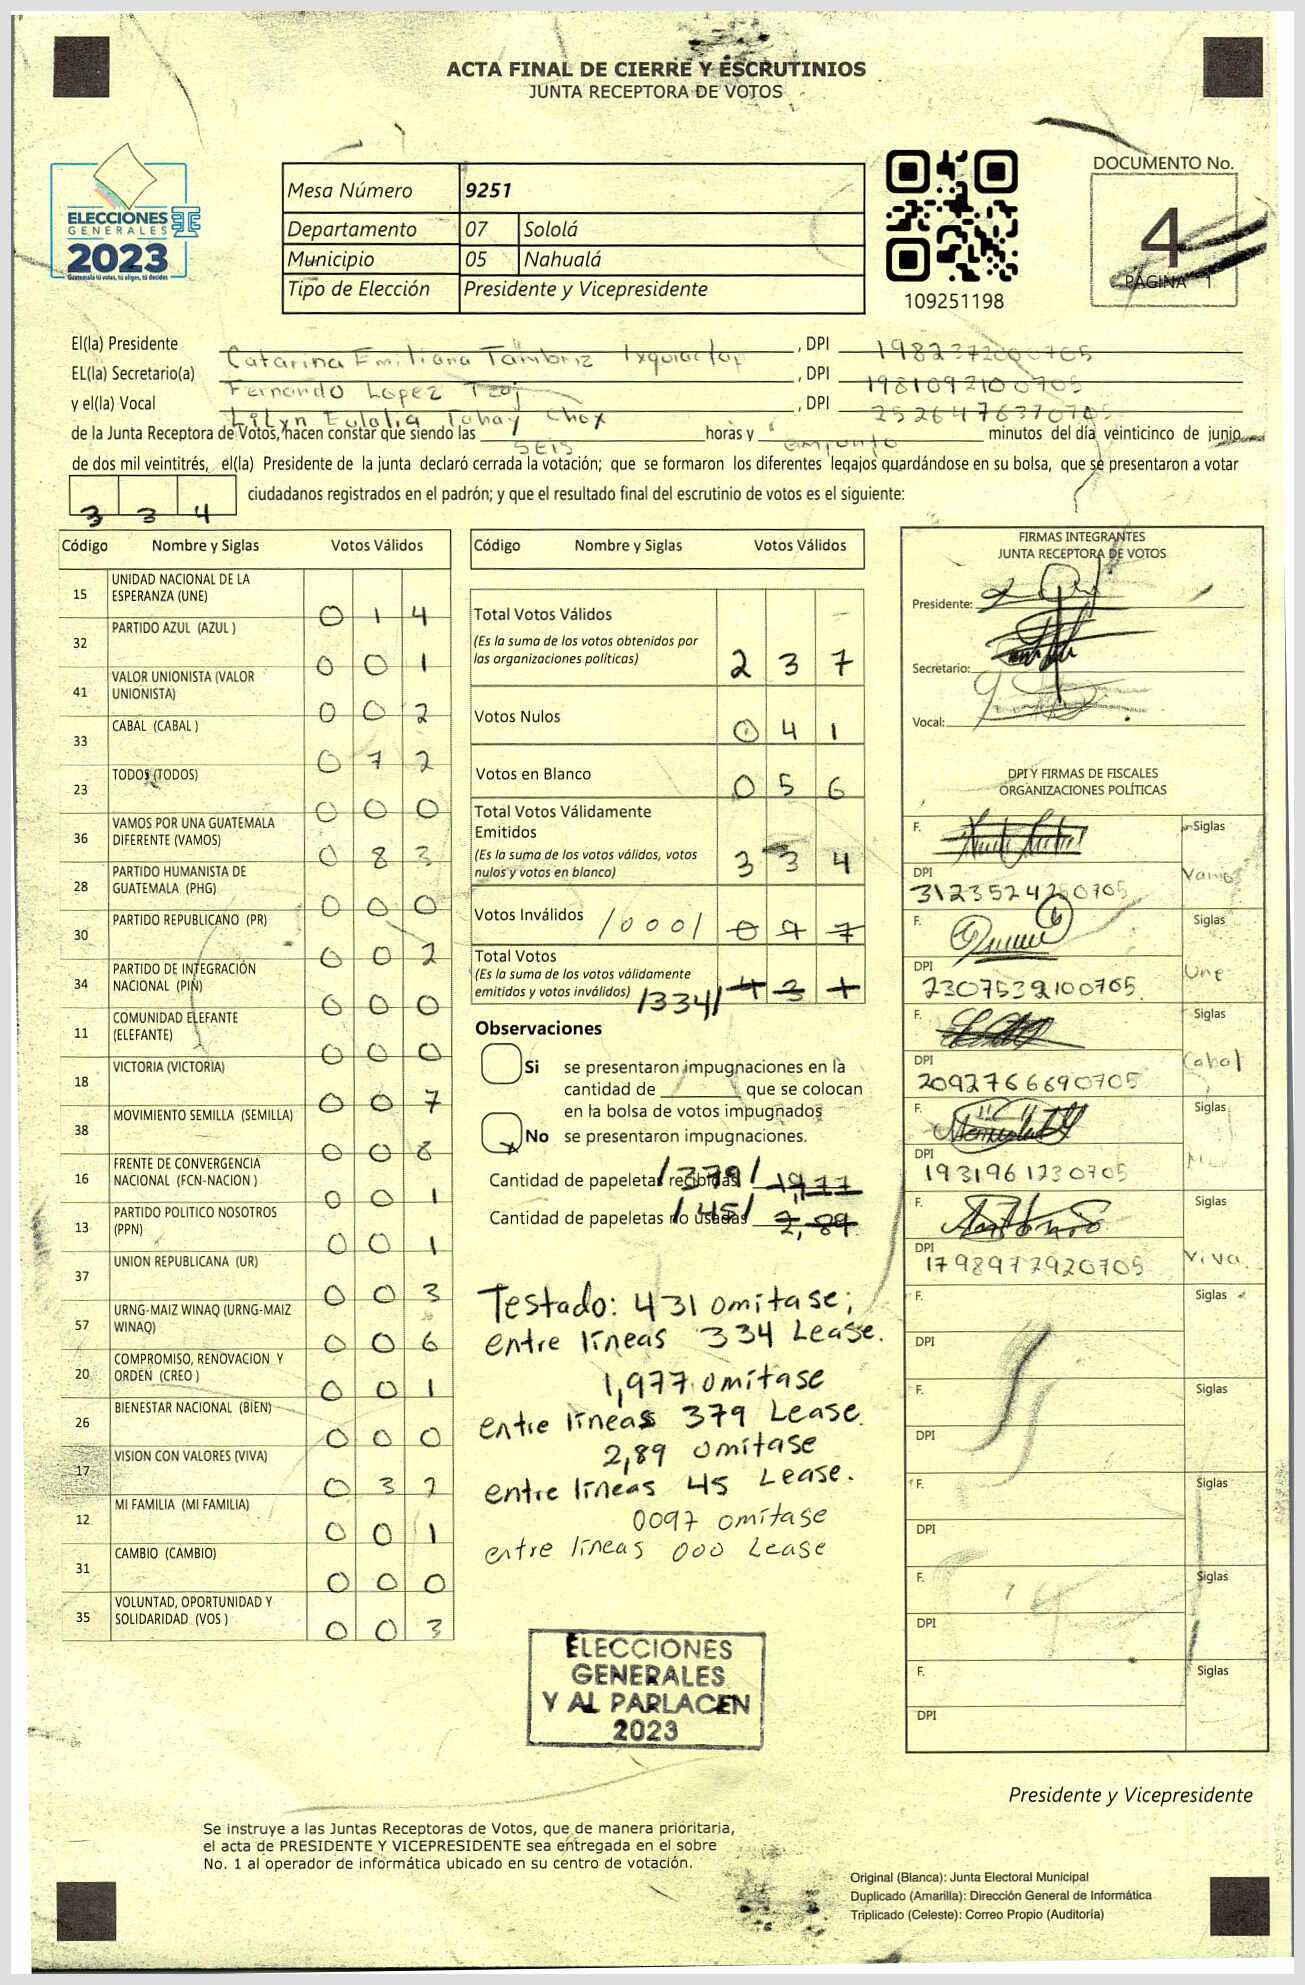 ACTA FINAL DE CIERRE Y ESCRUTINIOS
JUNTA RECEPTORA DE VOTOS
ELECCIONES
GENERALES
2023
Guatemala tú votas, tú eliges, tú decides
Mesa Número 9251
Departamento 07 Sololá
Municipio 05 Nahualá
Tipo de Elección Presidente y Vicepresidente
109251198
DOCUMENTO No.
4
PAGINA 1
El(la) Presidente Catarina Emiliana Tambriz , DPI 1982372000705
EL(la) Secretario(a) Fernando Lopez Tzoj , DPI 1981092100705
y el(la) Vocal Lilyn Eulalia Tohay Chox , DPI 2526476370705
de la Junta Receptora de Votos, hacen constar que siendo las seis horas y minutos del día veinticinco de junio
de dos mil veintitrés, el(la) Presidente de la junta declaró cerrada la votación; que se formaron los diferentes legajos guardándose en su bolsa, que se presentaron a votar
3 3 4 ciudadanos registrados en el padrón; y que el resultado final del escrutinio de votos es el siguiente:
Código Nombre y Siglas Votos Válidos
15 UNIDAD NACIONAL DE LA
ESPERANZA (UNE) 0 1 4
32 PARTIDO AZUL (AZUL ) 0 0 1
41 VALOR UNIONISTA (VALOR
UNIONISTA) 0 0 2
33 CABAL (CABAL ) 0 7 2
23 TODOS (TODOS) 0 0 0
36 VAMOS POR UNA GUATEMALA
DIFERENTE (VAMOS) 0 8 3
28 PARTIDO HUMANISTA DE
GUATEMALA (PHG) 0 0 0
30 PARTIDO REPUBLICANO (PR) 0 0 2
34 PARTIDO DE INTEGRACIÓN
NACIONAL (PIN) 0 0 0
11 COMUNIDAD ELEFANTE
(ELEFANTE) 0 0 0
18 VICTORIA (VICTORIA) 0 0 7
38 MOVIMIENTO SEMILLA (SEMILLA) 0 0 8
16 FRENTE DE CONVERGENCIA
NACIONAL (FCN-NACION ) 0 0 1
13 PARTIDO POLITICO NOSOTROS
(PPN) 0 0 1
37 UNION REPUBLICANA (UR) 0 0 3
57 URNG-MAIZ WINAQ (URNG-MAIZ
WINAQ) 0 0 6
20 COMPROMISO, RENOVACION Y
ORDEN (CREO ) 0 0 1
26 BIENESTAR NACIONAL (BIEN) 0 0 0
17 VISION CON VALORES (VIVA) 0 3 2
12 MI FAMILIA (MI FAMILIA) 0 0 1
31 CAMBIO (CAMBIO) 0 0 0
35 VOLUNTAD, OPORTUNIDAD Y
SOLIDARIDAD (VOS ) 0 0 3
Código Nombre y Siglas Votos Válidos
Total Votos Válidos
(Es la suma de los votos obtenidos por
las organizaciones políticas) 2 3 7
Votos Nulos 0 4 1
Votos en Blanco 0 5 6
Total Votos Válidamente
Emitidos
(Es la suma de los votos válidos, votos
nulos y votos en blanco) 3 3 4
Votos Inválidos /000/ 0 9 7
Total Votos
(Es la suma de los votos válidamente
emitidos y votos inválidos) /334/ 4 3 1
Observaciones
Si se presentaron impugnaciones en la
cantidad de ______ que se colocan
en la bolsa de votos impugnados
x No se presentaron impugnaciones.
Cantidad de papeletas recibidas /379/ 1,977
Cantidad de papeletas no usadas /45/ 2,89
Testado: 431 omitase;
entre líneas 334 Lease.
1,977 omitase
entre líneas 379 Lease.
2,89 omitase
entre líneas 45 Lease.
0097 omitase
entre líneas 000 Lease
ELECCIONES
GENERALES
Y AL PARLACEN
2023
FIRMAS INTEGRANTES
JUNTA RECEPTORA DE VOTOS
Presidente:
Secretario:
Vocal:
DPI Y FIRMAS DE FISCALES
ORGANIZACIONES POLÍTICAS
F. Siglas
Vamos
DPI
3123524250705
F. Siglas
Une
DPI
2307539100705
F. Siglas
Cabal
DPI
2092766690705
F. Siglas
DPI
1931961230705
F. Siglas
Viva
DPI
1798977920705
F. Siglas
DPI
F. Siglas
DPI
F. Siglas
DPI
F. Siglas
DPI
F. Siglas
DPI
Presidente y Vicepresidente
Se instruye a las Juntas Receptoras de Votos, que de manera prioritaria,
el acta de PRESIDENTE Y VICEPRESIDENTE sea entregada en el sobre
No. 1 al operador de informática ubicado en su centro de votación.
Original (Blanca): Junta Electoral Municipal
Duplicado (Amarilla): Dirección General de Informática
Triplicado (Celeste): Correo Propio (Auditoría)